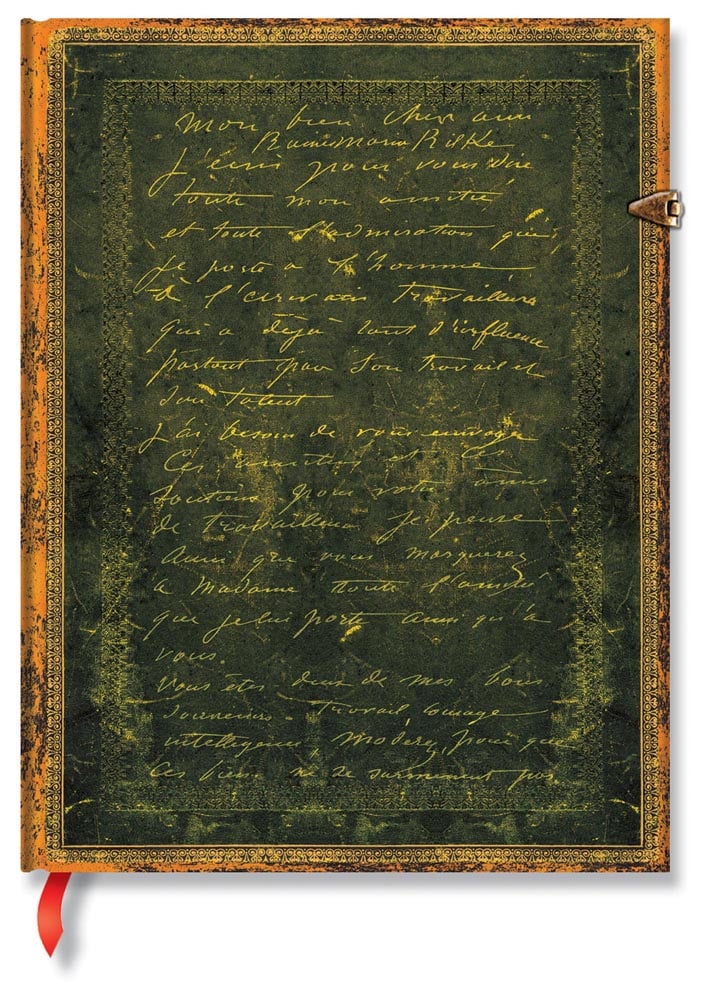 Mon bien cher ami
Rainer Maria Rilke
J'écris pour vous dire
toute mon amitié
et toute l'admiration que
je porte a l'homme
à l'écrivain travailleur
qui a déjà tant d'influence
partout par son travail et
son talent
j'ai besoin de vous envoyer
Ces amitiés et
soutiens pour vote
de travailleur je pense
Aussi que vous marquerez
a Madame toute l'amitié
que je lui porte ainsi qu'à
vous.
Vous êtes de mes bons
souvenirs. Travail courage
intelligence, pour que
Ces biens ne se surmenent pas.